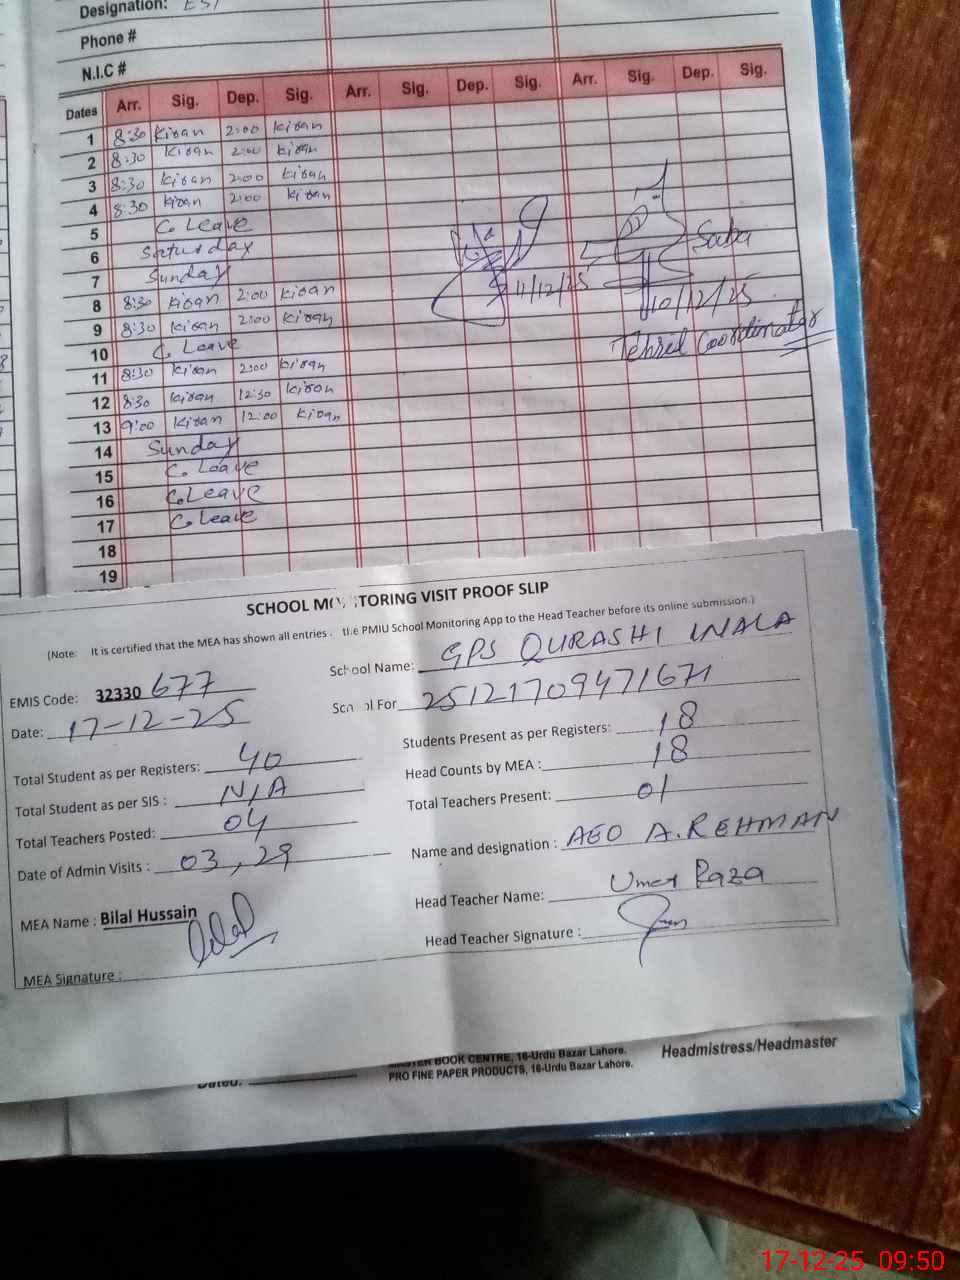 Designation: EST
Phone #
N.I.C #
Dates Arr. Sig. Dep. Sig. Arr. Sig. Dep. Sig. Arr. Sig. Dep. Sig.
1 8:30 Kiran 2:00 Kiran
2 8:30 Kiran 2:00 Kiran
3 8:30 Kiran 2:00 Kiran
4 8:30 Kiran 2:00 Kiran
5 C. Leave
6 Saturday
7 Sunday
8 8:30 Kiran 2:00 Kiran
9 8:30 Kiran 2:00 Kiran
10 C. Leave
11 8:30 Kiran 2:00 Kiran
12 8:30 Kiran 12:30 Kiran
13 9:00 Kiran 12:00 Kiran
14 Sunday
15 C. Leave
16 C. Leave
17 C. Leave
18
19
4/12/25
Saba
10/12/25
Tehsil Coordinator
SCHOOL MONITORING VISIT PROOF SLIP
(Note: It is certified that the MEA has shown all entries the PMIU School Monitoring App to the Head Teacher before its online submission.)
EMIS Code: 32330 677
School Name: GPS QURASHI WALA
Date: 17-12-25
School For 25121709471671
Total Student as per Registers: 40
Students Present as per Registers: 18
Total Student as per SIS : N/A
Head Counts by MEA : 18
Total Teachers Posted: 04
Total Teachers Present: 01
Date of Admin Visits : 03, 29
Name and designation : AEO A.REHMAN
MEA Name : Bilal Hussain
Head Teacher Name: Umer Raza
MEA Signature : Bilal
Head Teacher Signature :
Dated:
MASTER BOOK CENTRE, 16-Urdu Bazar Lahore.
PRO FINE PAPER PRODUCTS, 16-Urdu Bazar Lahore.
Headmistress/Headmaster
17-12-25 09:50